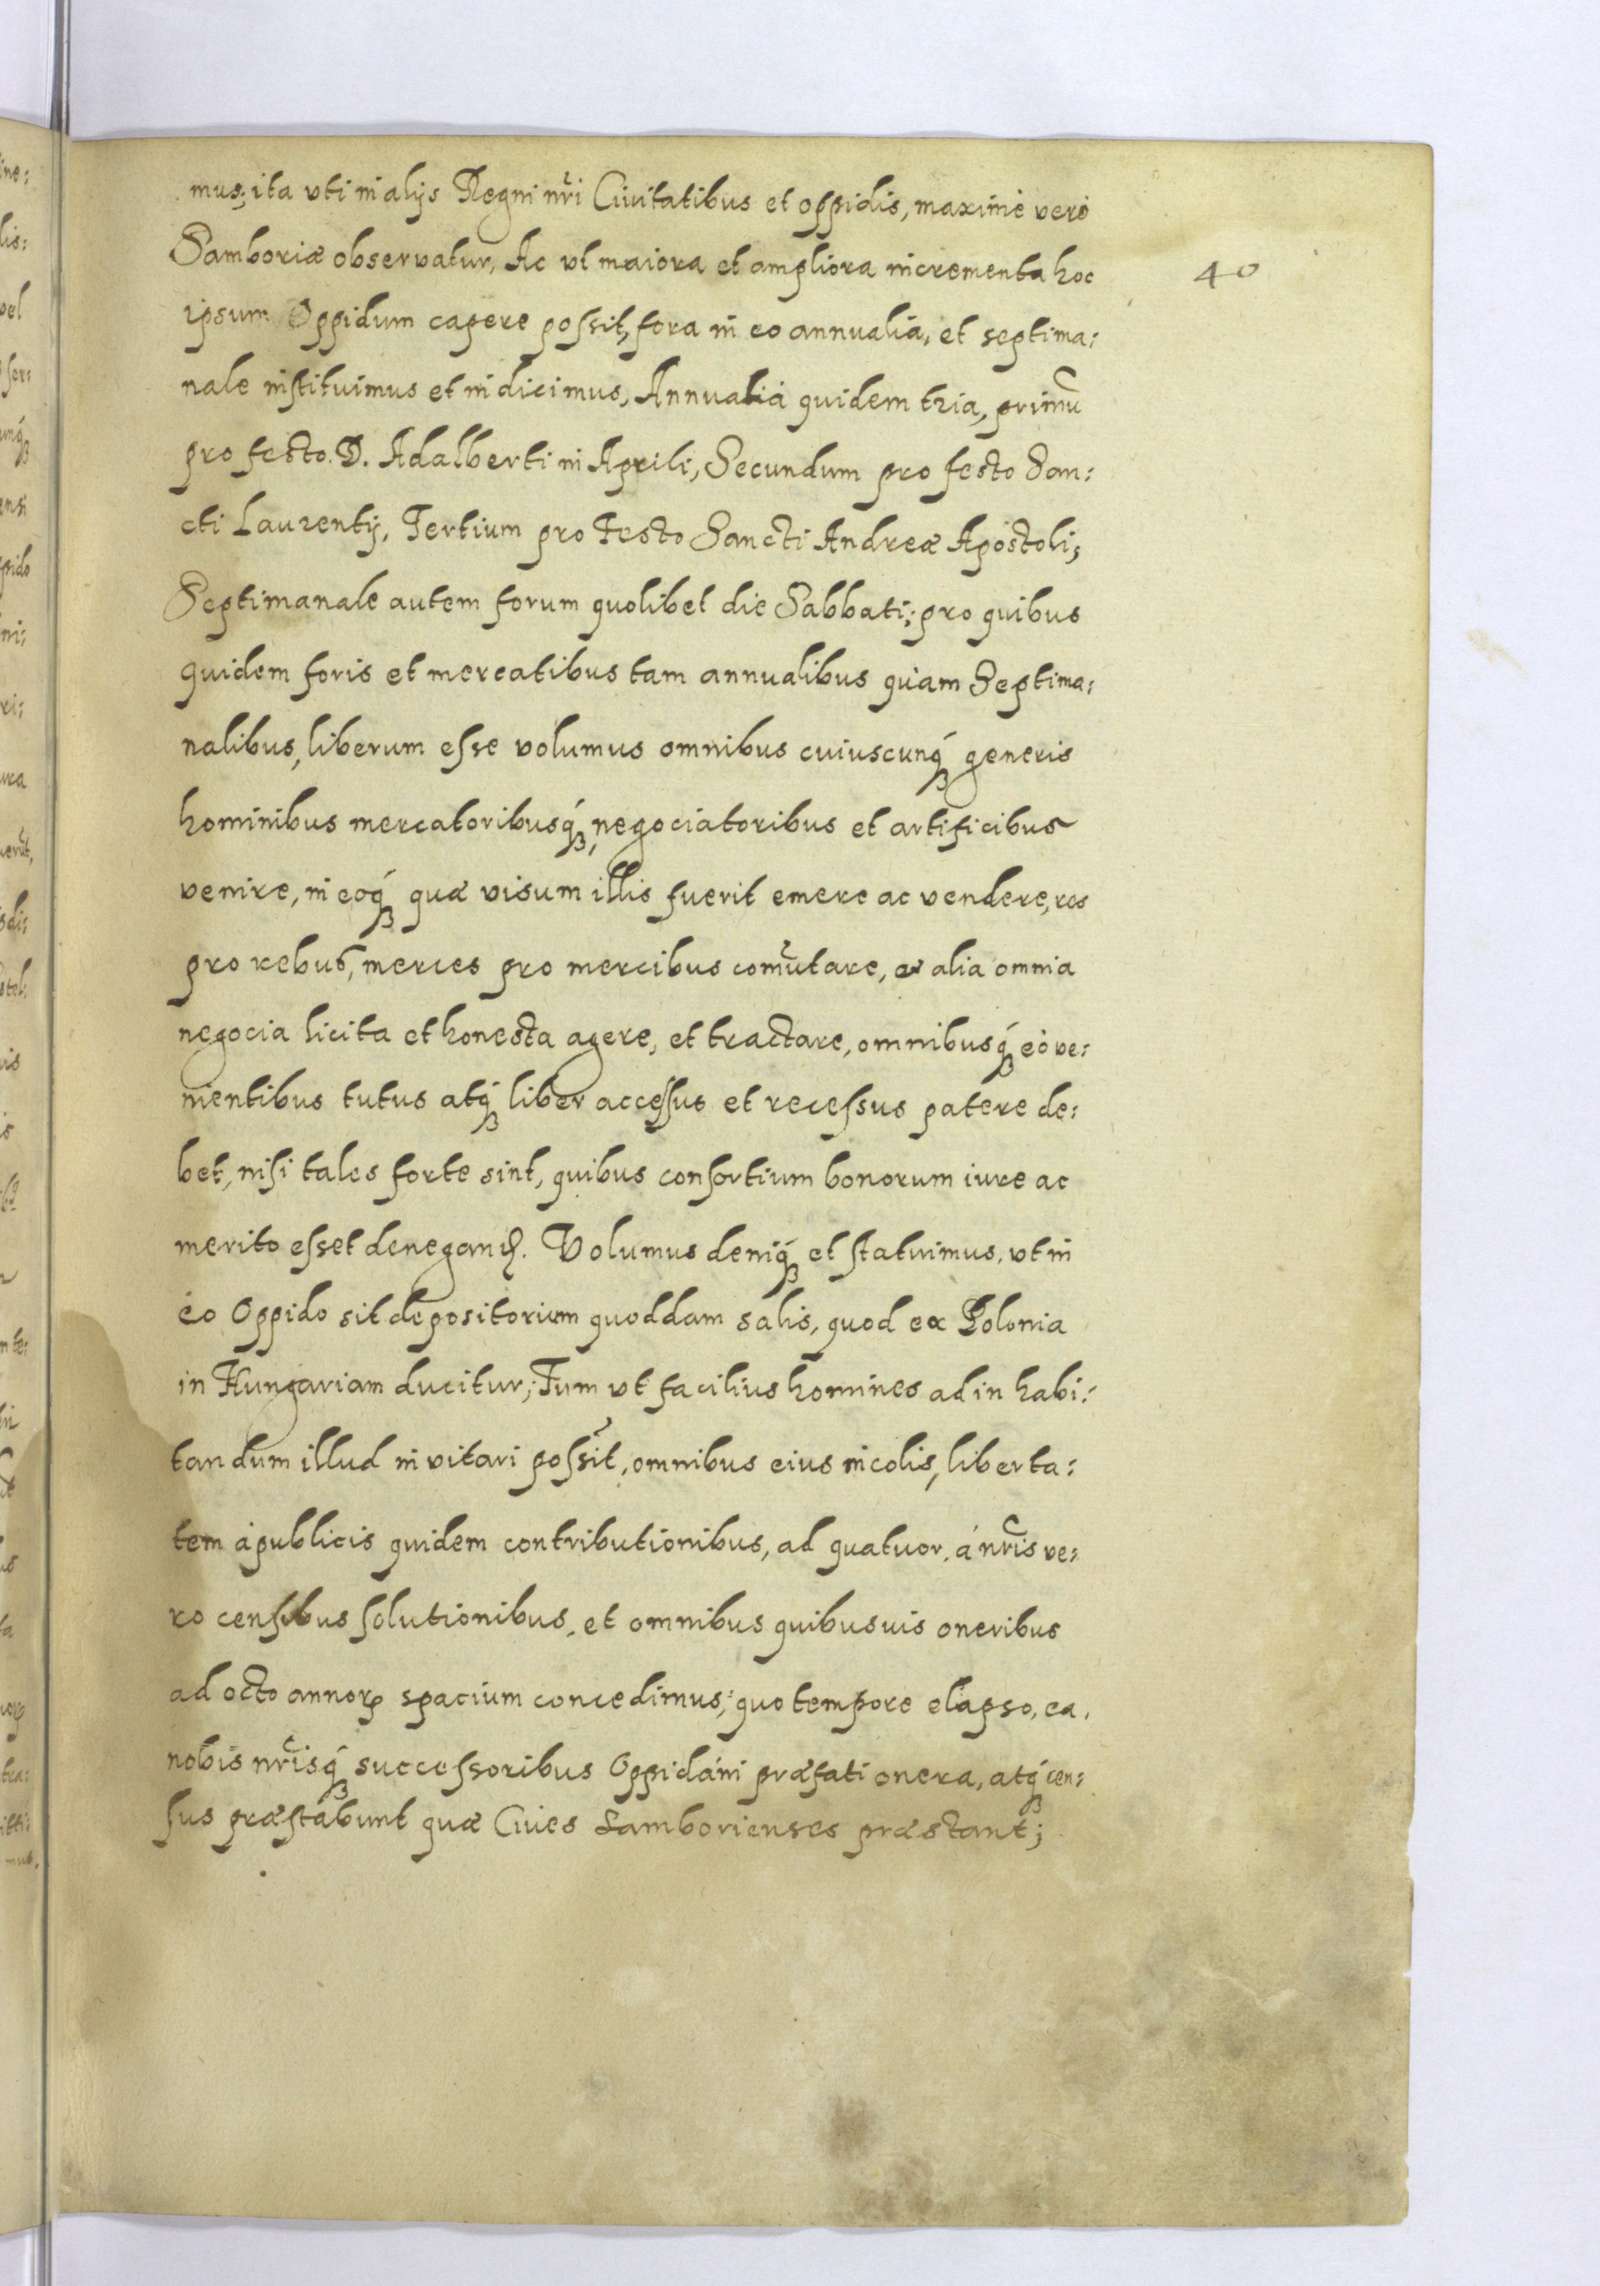 mus; ita vti in alijs Regni nr̃i Ciuitatibus et oppidis, maximè verò
Samboriæ obseruatur, Ac vt maiora et ampliora incrementa hoc
40
ipsum Oppidum capere possit, fora in eo annualia, et septima:
nale instituimus et indicimus, Annualia quidem tria, primũ
pro festo D. Adalberti in Aprili, Secundum pro festo San:
cti Laurentij, Tertium pro Festo Sancti Andreæ Apostoli;
Septimanale autem forum quolibet die Sabbati; pro quibus
quidem foris et mercatibus tam annualibus quàm Septima:
nalibus, liberum esse volumus omnibus cuiuscunq́ꝫ generis
hominibus mercatoribusq́ꝫ, negociatoribus et artificibus
venire, in eoq́ꝫ quæ visum illis fuerit emere ac vendere, res
pro rebus, merces pro mercibus com̃utare, et alia omnia
negocia licita et honesta agere, et tractare, omnibusq́ꝫ eò ve:
nientibus tutus atq́ꝫ liber accessus et recessus patere de:
bet, nisi tales forte sint, quibus consortium bonorum iure ac
merito esset denegand. Volumus deniq́ꝫ et statuimus, vt in
eo Oppido sit depositorium quoddam salis, quod ex Polonia
in Hungariam ducitur; Tum vt facilius homines ad in habi:
tandum illud invitari possit̃, omnibus eius incolis, liberta:
tem à publicis quidem contributionibus, ad quatuor, à nr̃is ve:
ro censibus solutionibus, et omnibus quibusuis oneribus
ad octo annorꝫ spacium concedimus; quo tempore elapso, ea,
nobis nr̃isq́ꝫ successoribus Oppidáni præfati onera, atq́ꝫ cen:
sus præstabunt quæ Ciues Samborienses præstant;